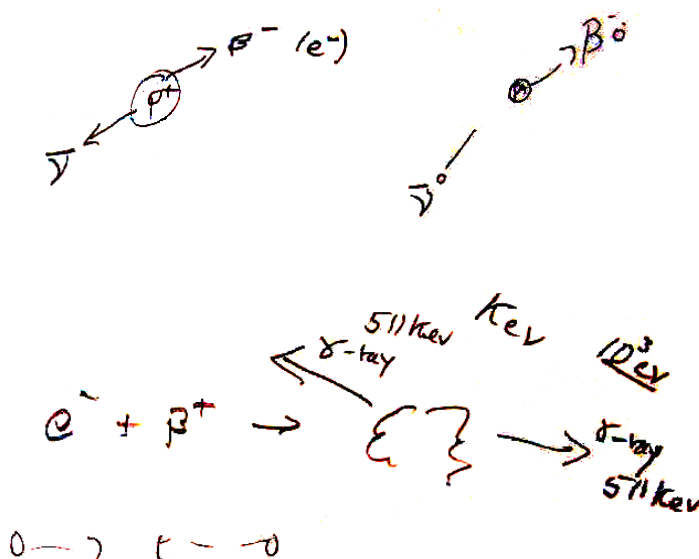 β⁻ (e⁻)
p⁺
ν̄
β⁻
ν̄
511 Kev
Kev
γ-ray
10³ ev
e⁻ + β⁺ → { }
γ-ray
511 Kev